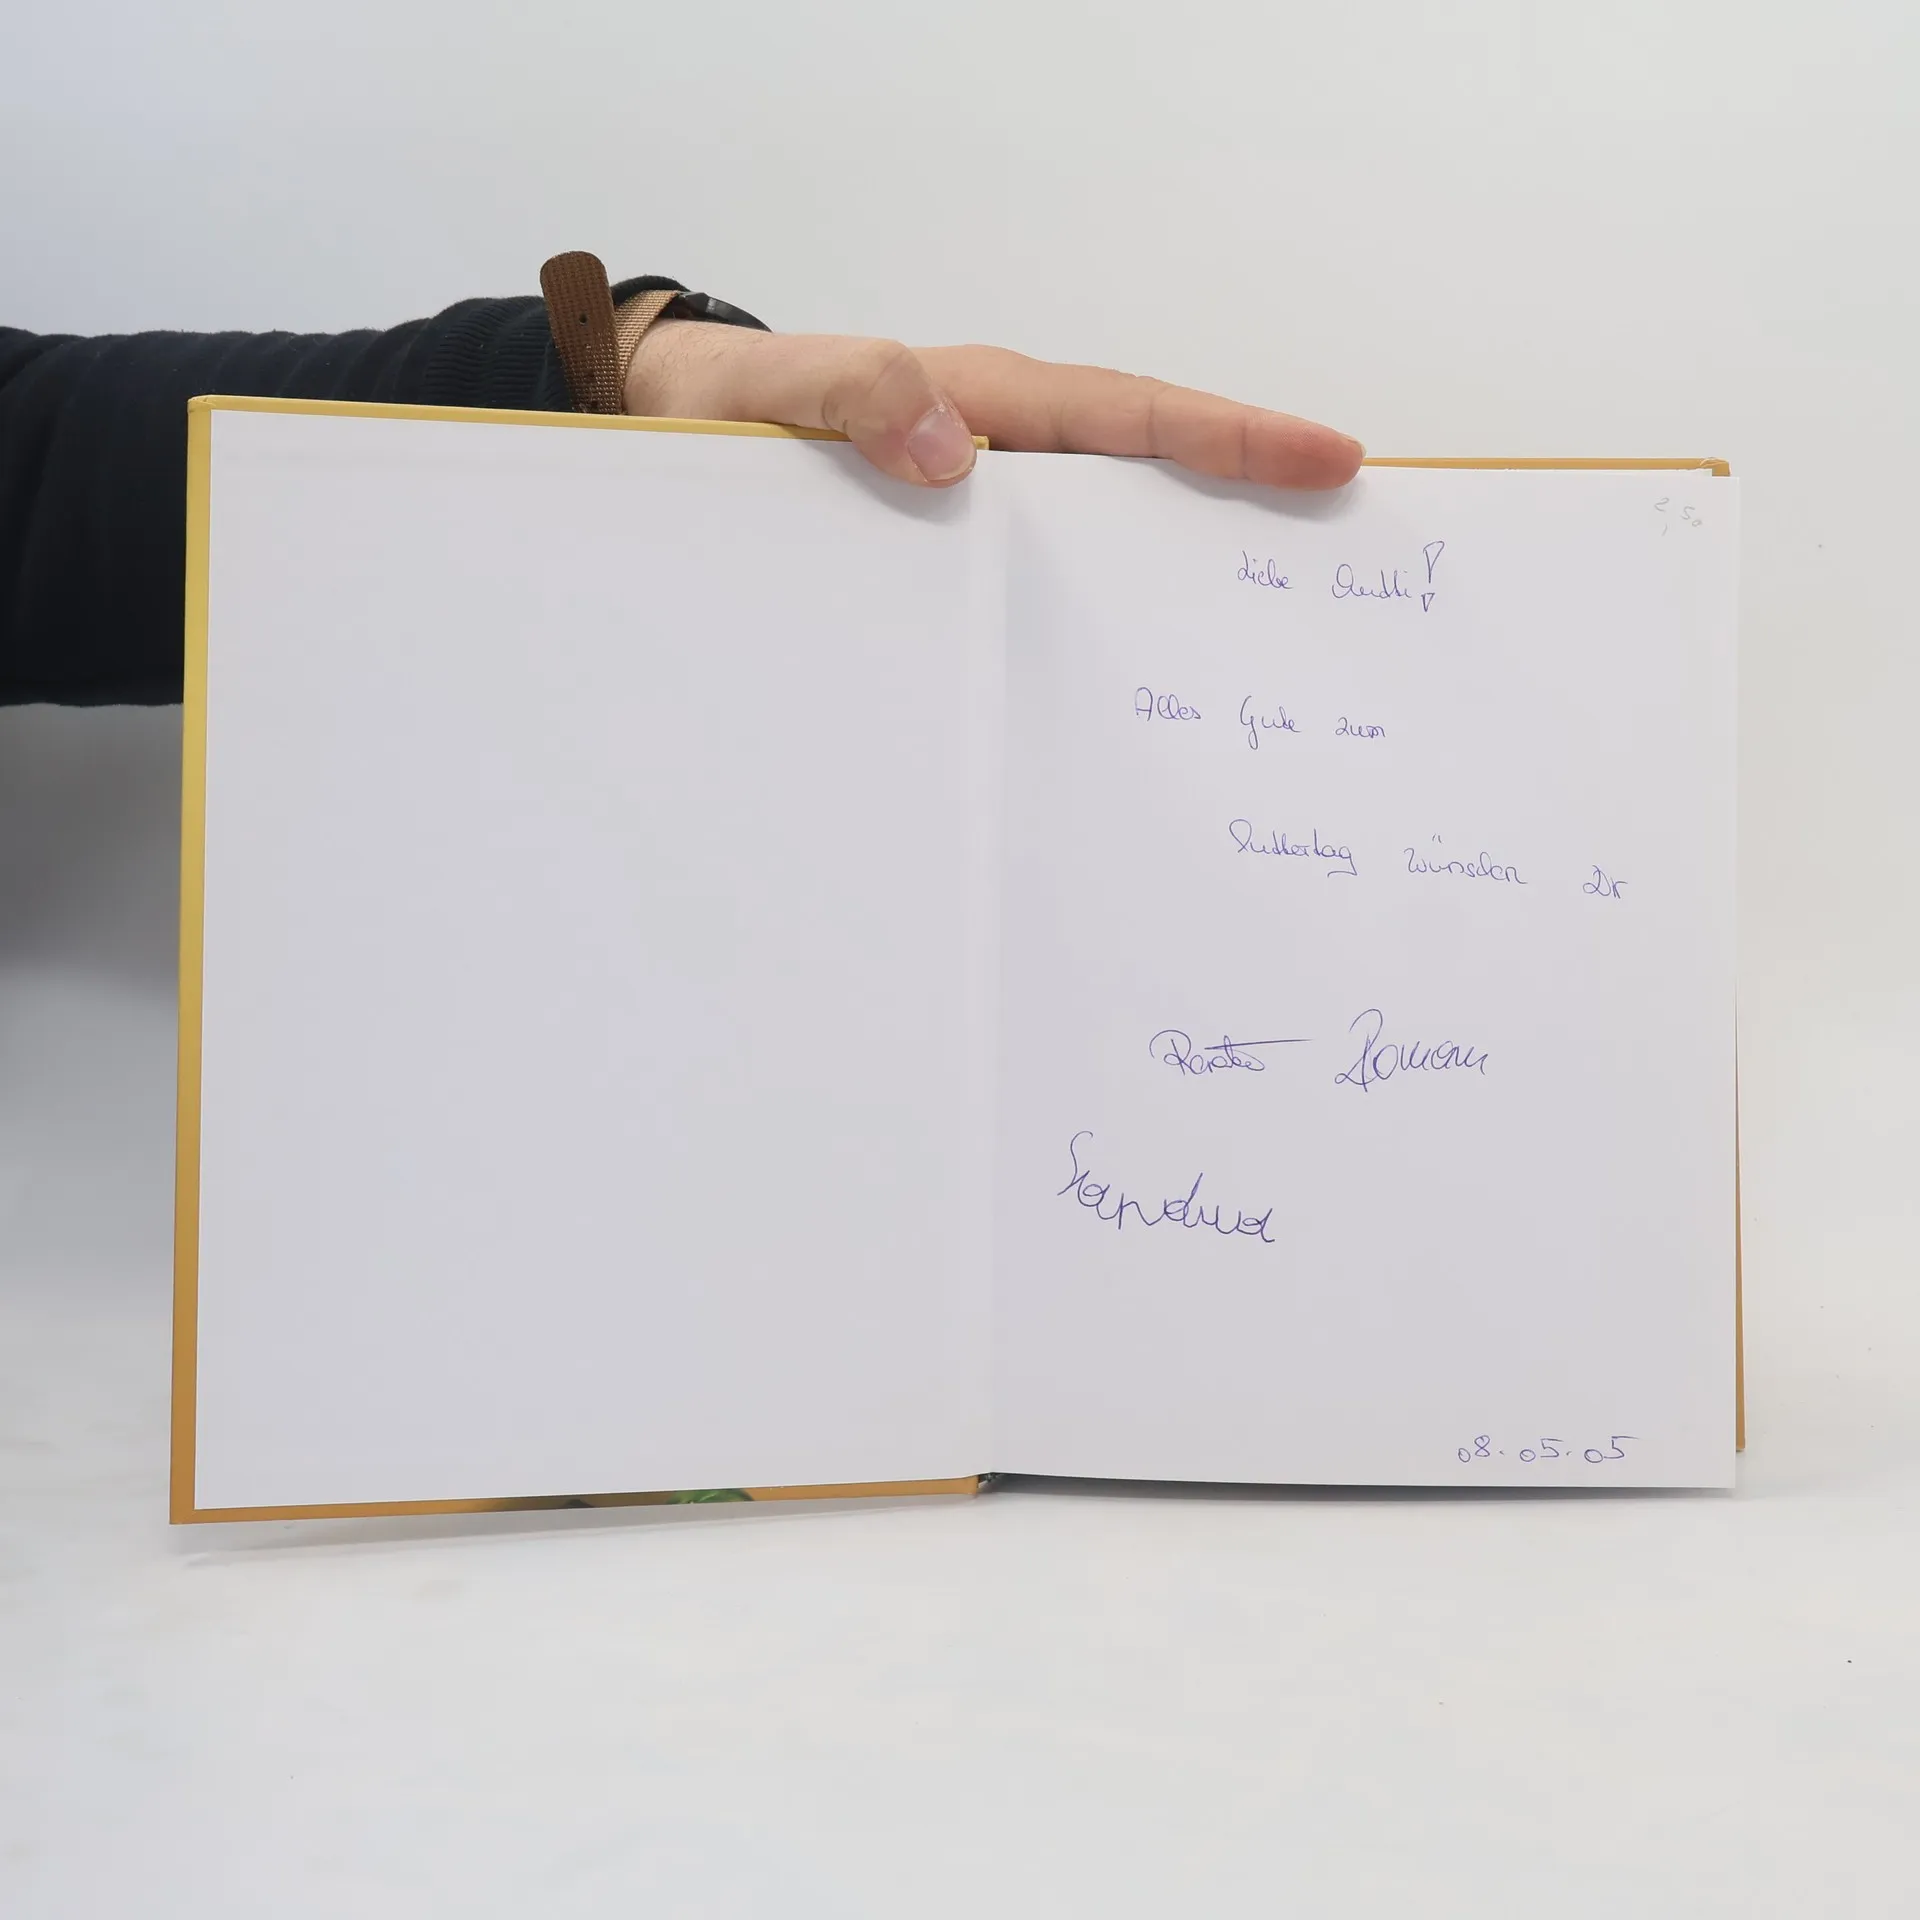 2,50
Liebe
Alles Gute zum
Muttertag wünschen Dir
Roman
08.05.05